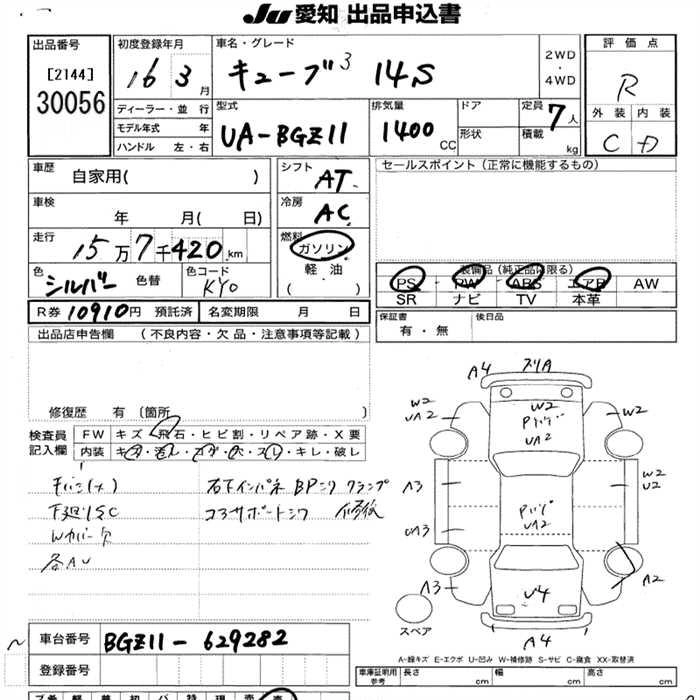 JU 愛知 出品申込書
出品番号
[2144]
30056
初度登録年月
16 3月
車名・グレード
キューブ3 14S
2WD
・
4WD
評価点
R
外装 内装
C D
ディーラー・並行
モデル年式 年
ハンドル 左・右
型式
UA-BGZ11
排気量
1400 CC
ドア
形状
定員 7人
積載 kg
車歴
自家用( )
車検
年 月( )
走行
15万7千420km
色
シルバー 色替
色コード
KY0
シフト
AT
冷房
AC
燃料
ガソリン
軽油
( )
セールスポイント(正常に機能するもの)
装備品(純正品に限る)
PS PW ABS エアB AW
SR ナビ TV 本革
R券 10910円 預託済 名変期限 月 日
保証書
有・無
後日品
出品店申告欄 (不良内容・欠品・注意事項等記載)
修復歴 有 〔箇所 〕
検査員
記入欄
FW キズ・飛石・ヒビ割・リペア跡・X要
内装 キズ・汚レ・コゲ・穴・スレ・キレ・破レ
下廻りSC
Wカバー欠
各AU
右インパネ BPニワ クランプ
コアサポートニワ 修復
A4 スリA
W2
UA2
W2
Pハゲ
UA2
W2
A3
W2
U2
Pハゲ
UA2
UA3
A3
U4
A2
A4
スペア
A-線キズ E-エクボ U-凹み W-補修跡 S-サビ C-腐食 XX-取替済
車台番号 BGZ11-629282
登録番号
車庫証明用
参考
長さ cm 幅 cm 高さ cm